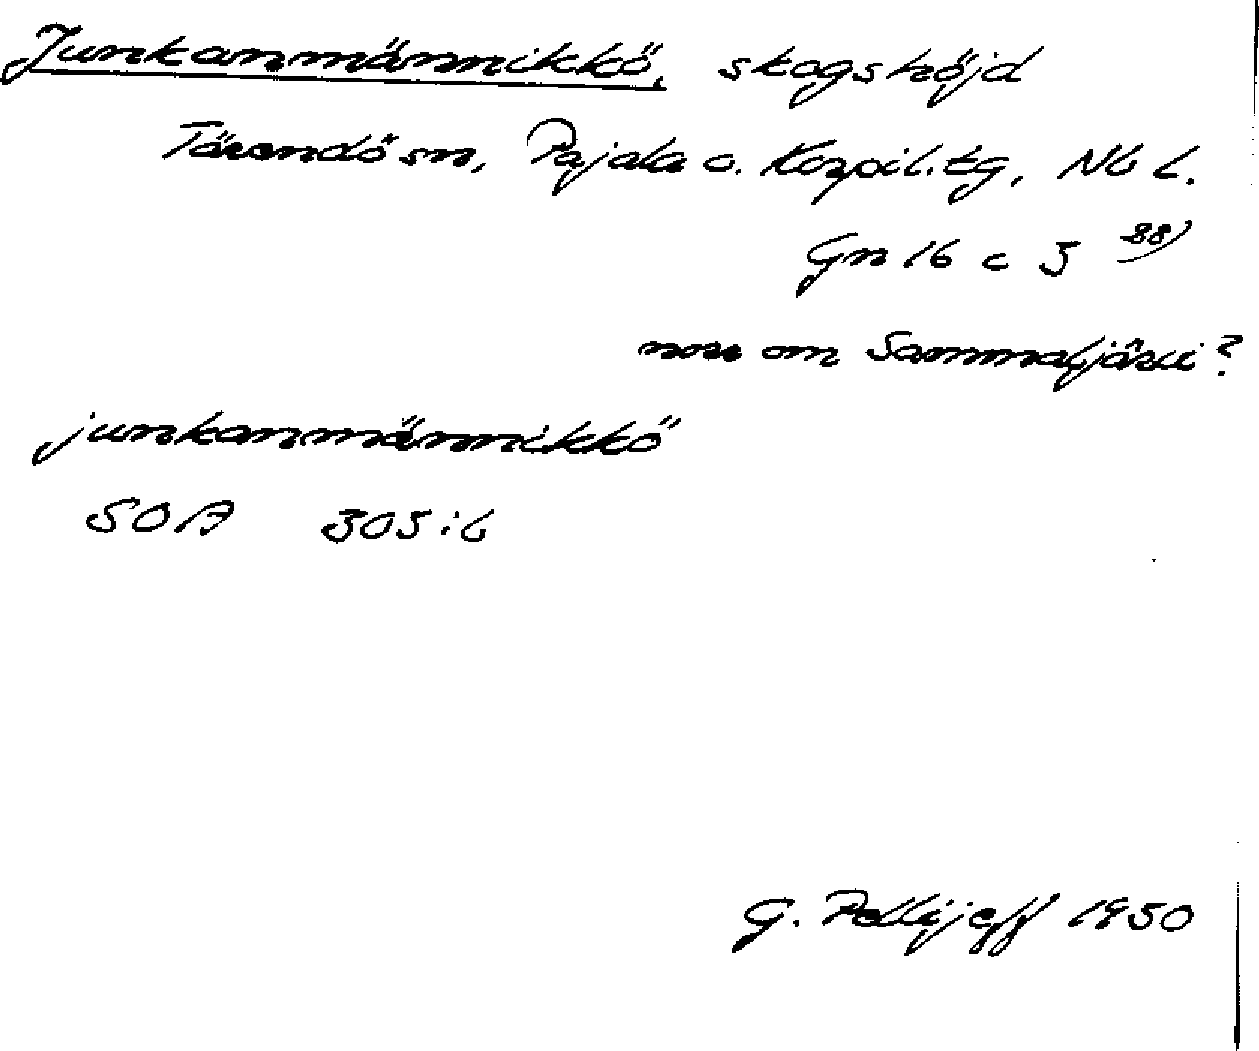 Junkanmännikkö, skogshöjd
Tärendö sn, Pajala o. Korpil. tg, Nb l.
Gn 16 c 3 28)
norr om Sammaljärvi?
junkanmännikkö
SOA 303:6
G. Pellijeff 1950